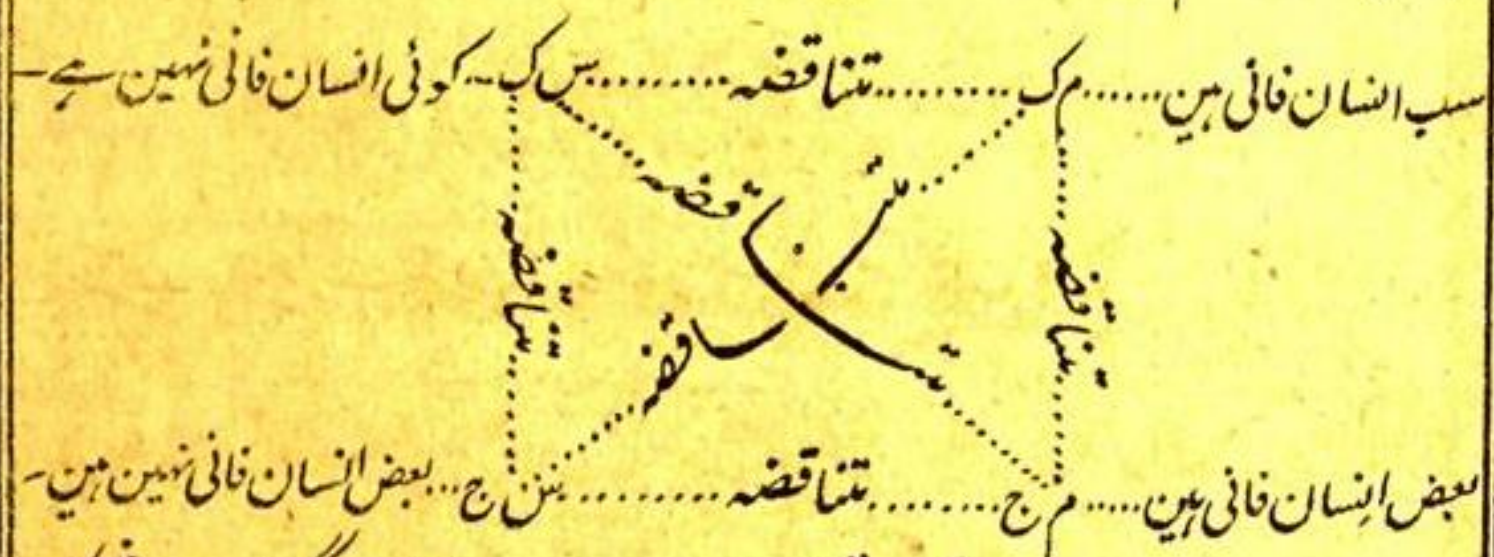 سب انسان فانی ہین......م ک.........متناقضہ.........س ک...کوئی انسان فانی نہین ہے—
متناقضہ
متناقضہ
متناقضہ
متناقضہ
بعض انسان فانی ہین.....م ج........متناقضہ.........س ج...بعض انسان فانی نہین ہین-